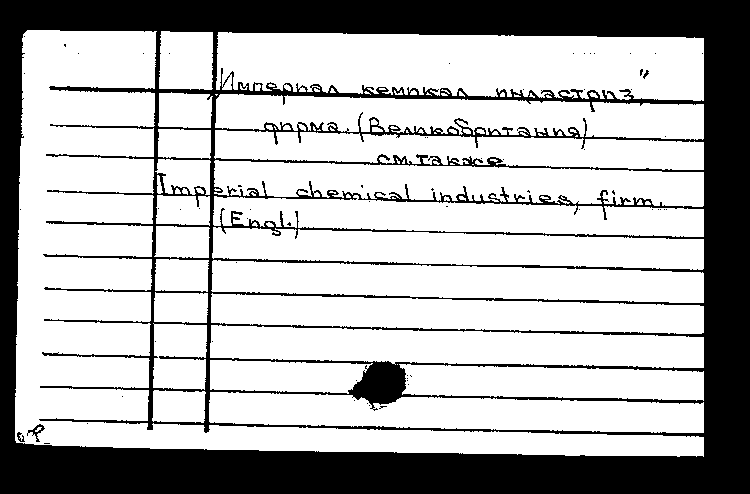 "Империал кемикал индастриз",
фирма. (Великобритания)
см. также
Imperial chemical industries, firm.
(Engl.)